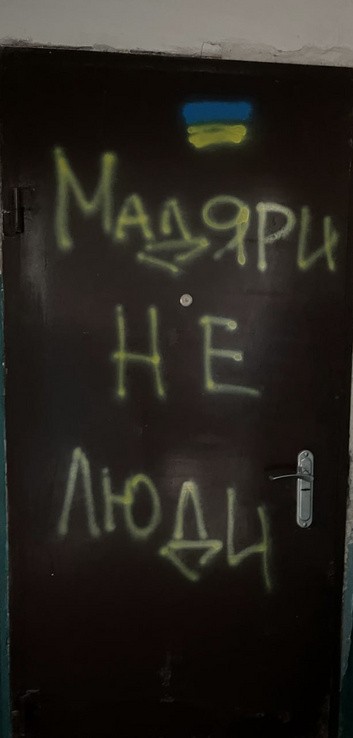 Мадяри
НЕ
ЛЮДИ